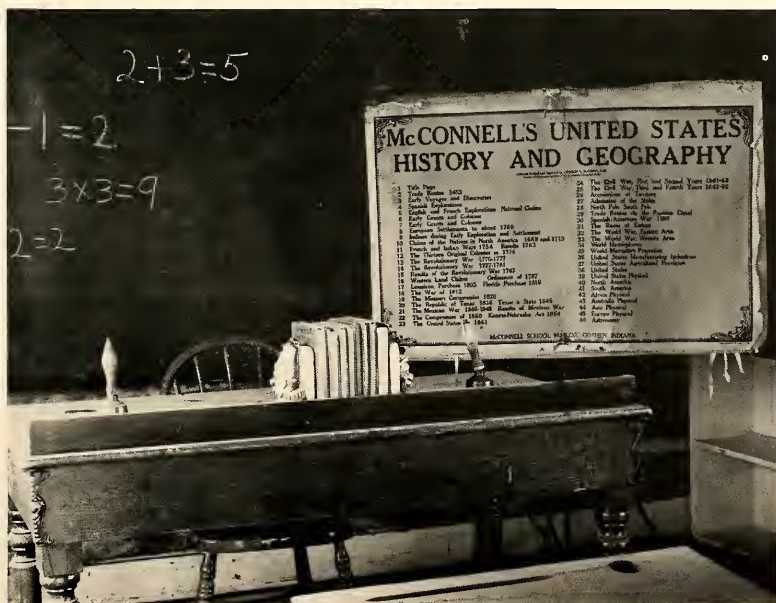 2+3=5
-1=2
3×3=9
2=2
McCONNELL'S UNITED STATES
HISTORY AND GEOGRAPHY
1 Title Page
2 Trade Routes 1453
3 Early Voyages and Discoveries
4 Spanish Explorations
5 English and French Explorations National Claims
6 Early Grants and Colonies
7 Early Grants and Colonies
8 European Settlements to about 1760
9 Indians during Early Exploration and Settlement
10 Claims of the Nations in North America 1689 and 1713
11 French and Indian Wars 1754 Results 1763
12 The Thirteen Original Colonies in 1774
13 The Revolutionary War 1775-1777
14 The Revolutionary War 1777-1781
15 Results of the Revolutionary War 1783
16 Western Land Claims Ordinance of 1787
17 Louisiana Purchase 1803 Florida Purchase 1819
18 The War of 1812
19 The Missouri Compromise 1820
20 The Republic of Texas 1836 Texas a State 1845
21 The Mexican War 1846-1848 Results of Mexican War
22 The Compromise of 1850 Kansas-Nebraska Act 1854
23 The United States in 1861
24 The Civil War, First and Second Years 1861-63
25 The Civil War, Third and Fourth Years 1863-65
26 Acquisitions of Territory
27 Admission of the States
28 North Pole South Pole
29 Trade Routes via the Panama Canal
30 Spanish-American War 1898
31 The Races of Europe
32 The World War, Eastern Area
33 The World War, Western Area
34 World Hemispheres
35 World Mercator's Projection
36 United States Manufacturing Industries
37 United States Agricultural Provinces
38 United States
39 United States Physical
40 North America
41 South America
42 Africa Physical
43 Australia Physical
44 Asia Physical
45 Europe Physical
McCONNELL SCHOOL MAP CO. GOSHEN INDIANA